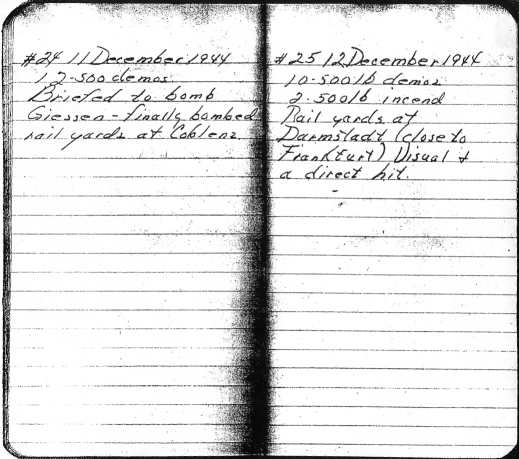 #24 11 December 1944
12-500 demos
Briefed to bomb
Giessen - finally bombed
rail yards at Coblenz.
#25 12 December 1944
10-500 lb demos
2-500 lb incend
Rail yards at
Darmstadt (close to
Frankfurt) Visual &
a direct hit.